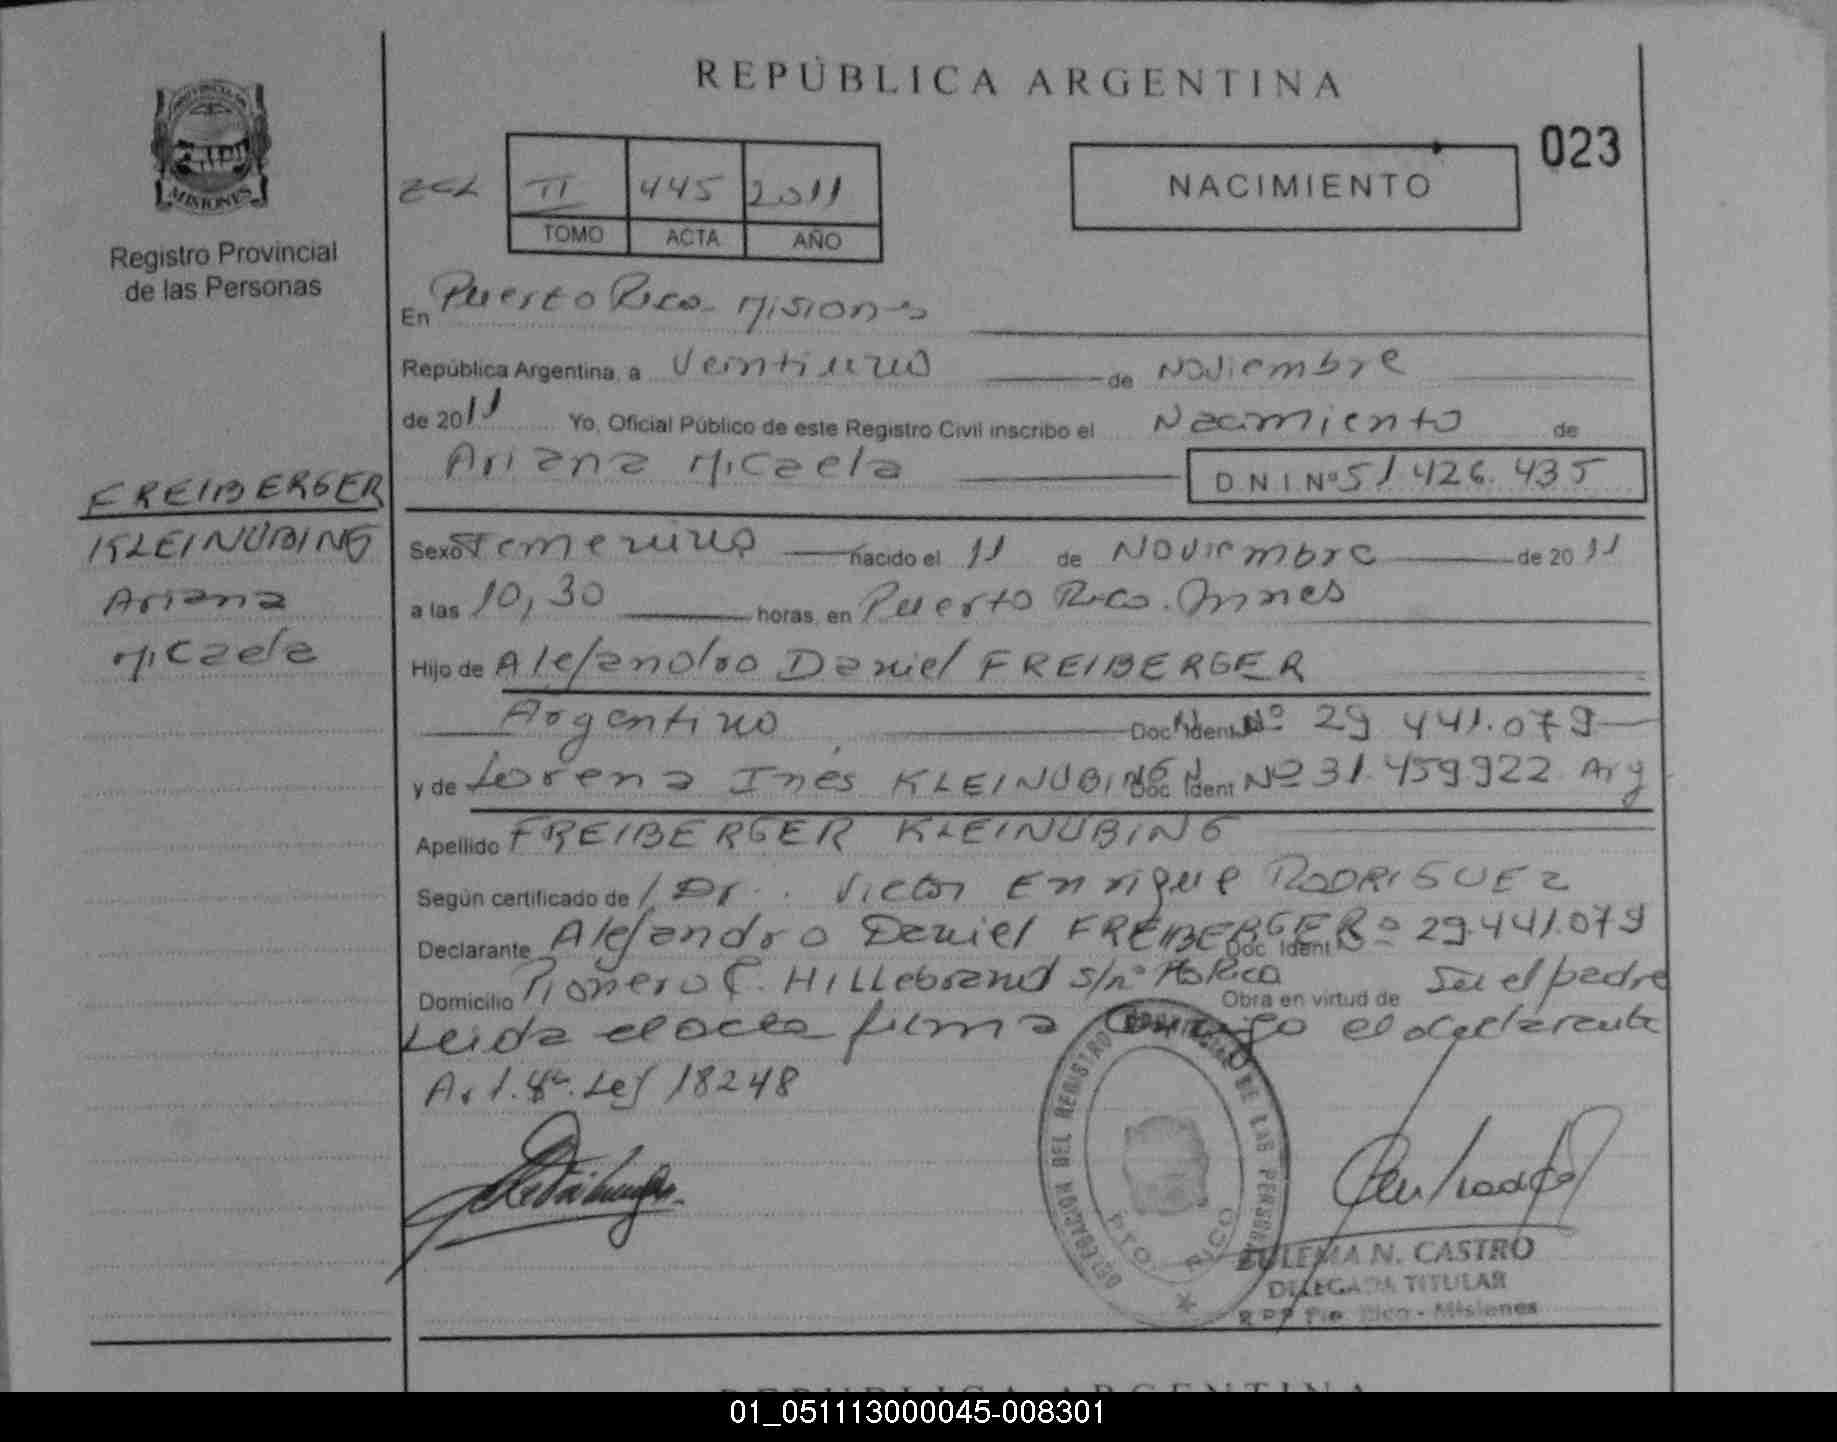 REPÚBLICA ARGENTINA
MISIONES
Registro Provincial
de las Personas
II 445 2011
TOMO ACTA AÑO
NACIMIENTO
023
En Puerto Rico Misiones
República Argentina, a Veintiuno de Noviembre
de 2011 Yo, Oficial Público de este Registro Civil inscribo el Nacimiento de
Ariana Micaela DNI Nº 51 426.435
FREIBERGER
KLEINUBING
Ariana
Micaela
Sexo Femenino nacido el 11 de Noviembre de 2011
a las 10,30 horas, en Puerto Rico.
Hijo de Alejandro Daniel FREIBERGER
Argentino Doc Ident Nº 29 441.079
y de Lorena Inés KLEINUBING Doc Ident Nº 31.459.922 Arg
Apellido FREIBERGER KLEINUBING
Según certificado de Dr. Victor Enrique RODRIGUEZ
Declarante Alejandro Daniel FREIBERGER Doc Ident 29.441.079
Domicilio Pionero C. Hillebrand s/nº Pto Rico Obra en virtud de Ser el padre
Leida el acta firma Conmigo el declarante
Art. Ley 18248
DELEGACION DEL REGISTRO PROVINCIAL DE LAS PERSONAS
PTO. RICO
ZULEMA N. CASTRO
DELEGADA TITULAR
R P P Pto. Rico - Misiones
REPÚBLICA ARGENTINA
01_051113000045-008301